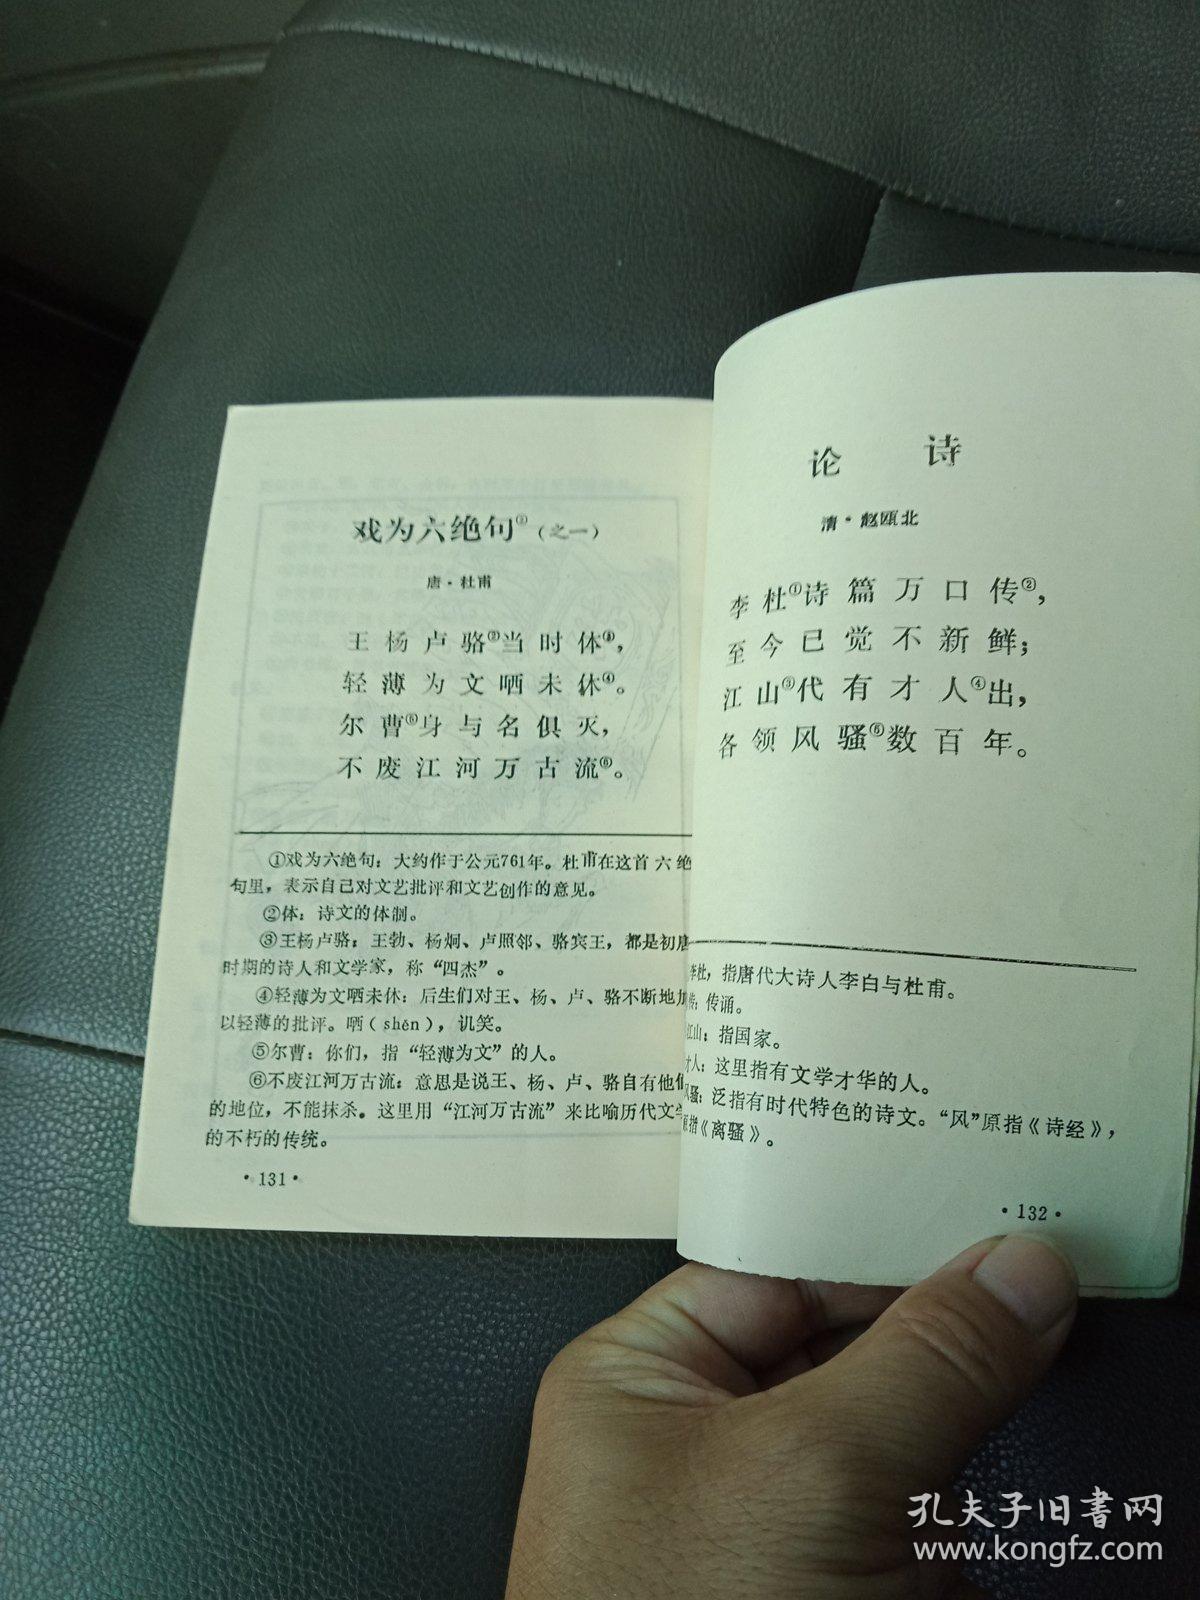 戏为六绝句①(之一)
唐·杜甫
王杨卢骆②当时体③,
轻薄为文哂未休④。
尔曹⑤身与名俱灭,
不废江河万古流⑥。
①戏为六绝句：大约作于公元761年。杜甫在这首六绝
句里，表示自己对文艺批评和文艺创作的意见。
②体：诗文的体制。
③王杨卢骆：王勃、杨炯、卢照邻、骆宾王，都是初唐
时期的诗人和文学家，称“四杰”。
④轻薄为文哂未休：后生们对王、杨、卢、骆不断地加
以轻薄的批评。哂(shěn)，讥笑。
⑤尔曹：你们，指“轻薄为文”的人。
⑥不废江河万古流：意思是说王、杨、卢、骆自有他们
的地位，不能抹杀。这里用“江河万古流”来比喻历代文学
的不朽的传统。
·131·
论诗
清·赵瓯北
李杜①诗篇万口传②,
至今已觉不新鲜;
江山③代有才人④出,
各领风骚⑤数百年。
李杜，指唐代大诗人李白与杜甫。
传：传诵。
江山：指国家。
才人：这里指有文学才华的人。
风骚：泛指有时代特色的诗文。“风”原指《诗经》，
原指《离骚》。
·132·
孔夫子旧书网
www.kongfz.com